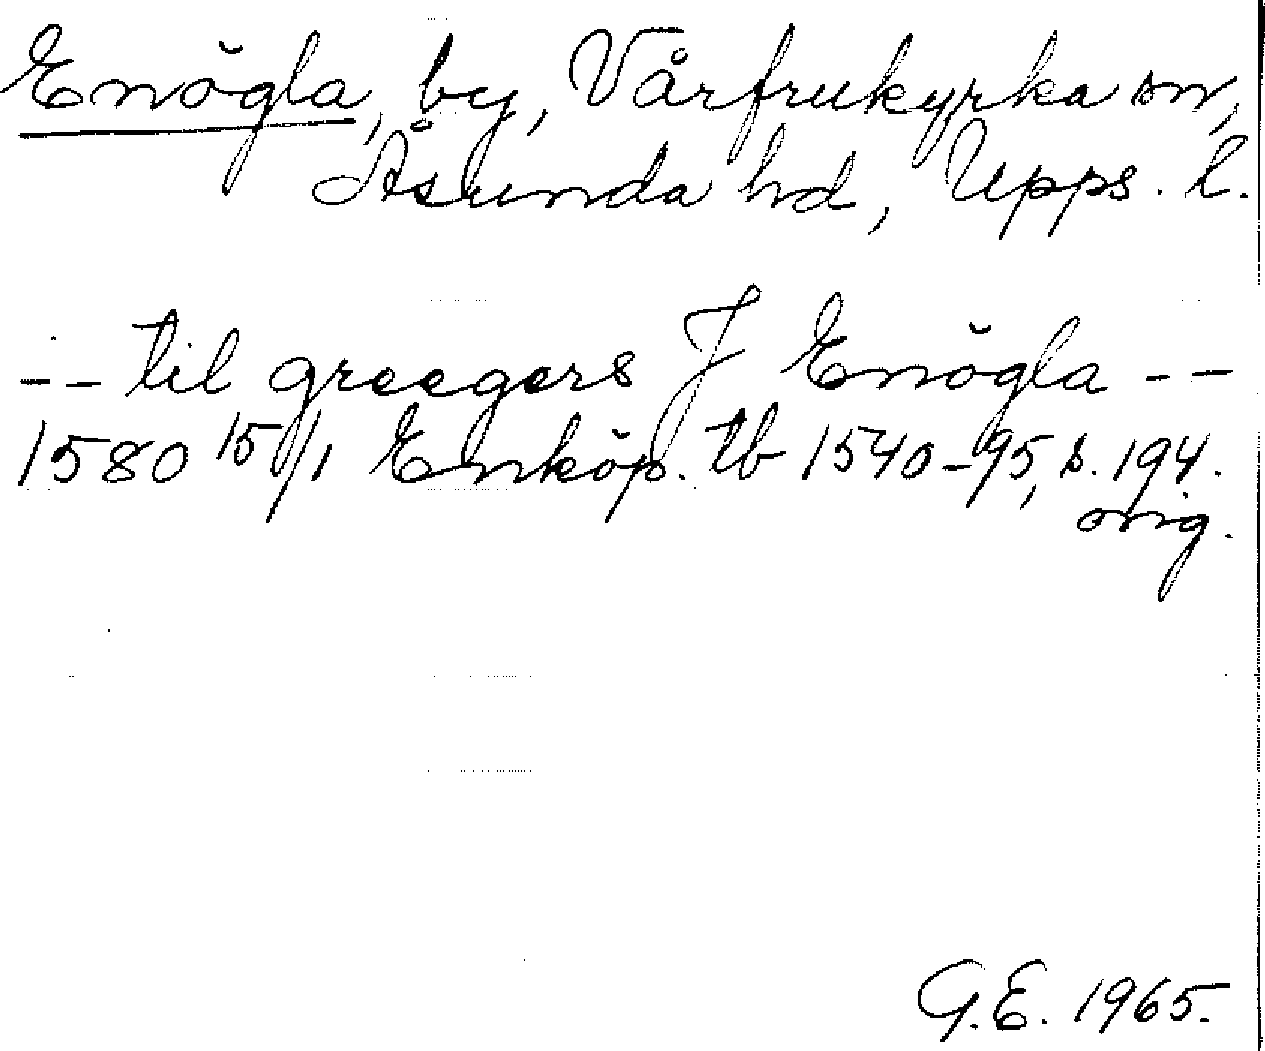 Enögla, by, Vårfrukyrka sn,
Åsunda hd, Upps. l.
-- til greegers J Enögla --
1580 15/1 Enköp. tb 1540-95, s. 194.
orig.
G.E. 1965.